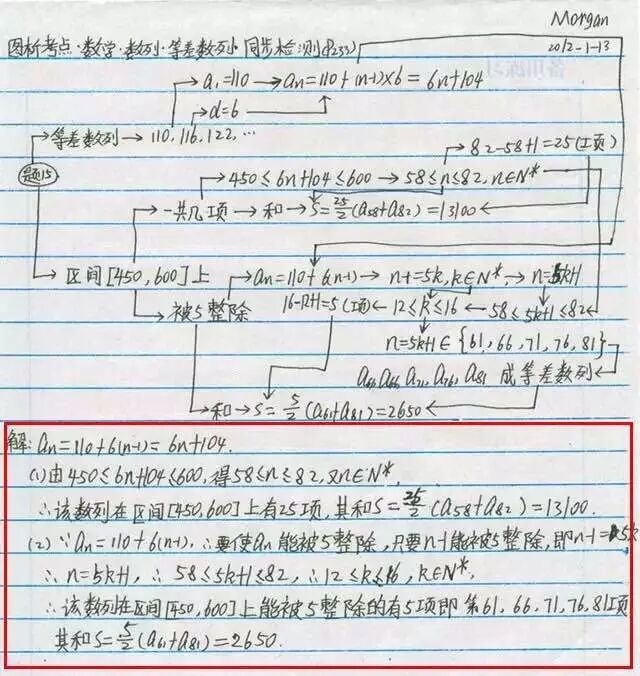 Morgan
2012-1-13
图析考点·数学·数列·等差数列 同步检测(P233)
a₁=110 → an=110+(n-1)×6=6n+104
d=6
等差数列 → 110, 116, 122, …
题15
82-58+1=25(项)
450≤6n+104≤600 → 58≤n≤82, n∈N*
一共几项 → 和 → S=25/2(a58+a82)=13100
区间[450,600]上 → an=110+6(n-1) → n-1=5k, k∈N*, → n=5k+1
被5整除 16-12+1=5(项) ← 12≤k≤16 ← 58≤5k+1≤82
n=5k+1∈{61, 66, 71, 76, 81}
a61, a66, a71, a76, a81 成等差数列
和 → S=5/2(a61+a81)=2650
解: an=110+6(n-1)=6n+104.
(1)由450≤6n+104≤600, 得58≤n≤82, 又n∈N*,
∴该数列在区间[450,600]上有25项, 其和S=25/2(a58+a82)=13100.
(2)∵an=110+6(n-1), ∴要使an能被5整除, 只要n-1能被5整除, 即n-1=5k
∴n=5k+1, ∴58≤5k+1≤82, ∴12≤k≤16, k∈N*,
∴该数列在区间[450,600]上能被5整除的有5项即第61, 66, 71, 76, 81项
其和S=5/2(a61+a81)=2650.